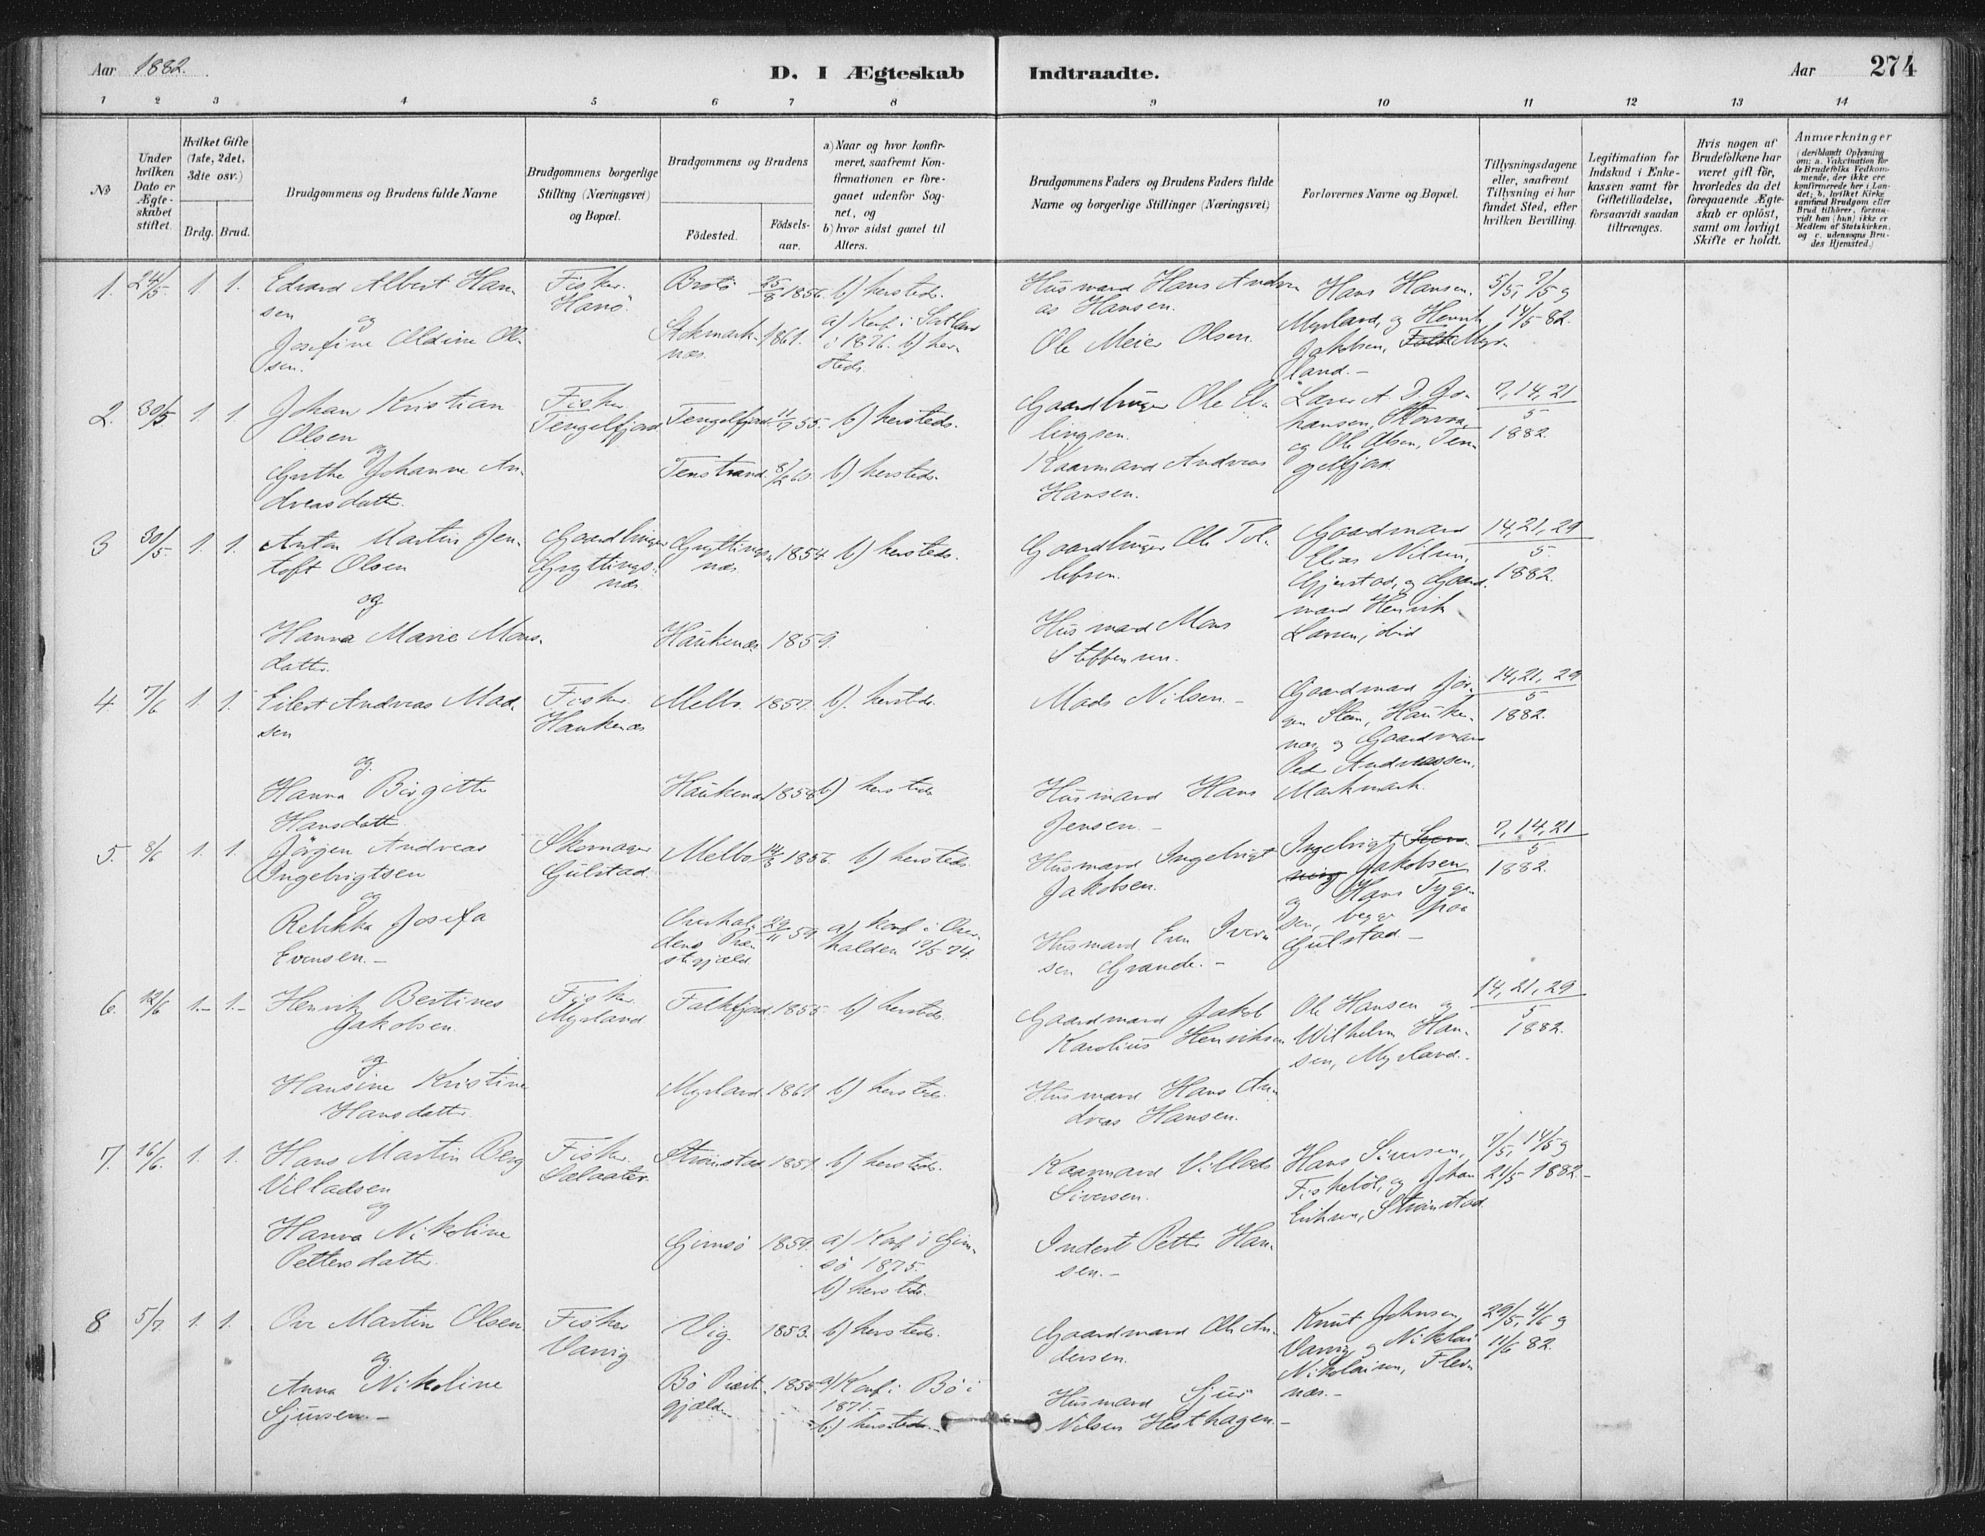 Aar 1882.
D. I Ægteskab Indtraadte.
Aar 274
1 2 3 4 5 6 7 8 9 10 11 12 13 14
No
Under hvilken Dato er Ægteskabet stiftet.
Hvilket Gifte (1ste, 2det, 3die osv.)
Brdg. Brud.
Brudgommens og Brudens fulde Navne
Brudgommens borgerlige Stilling (Næringsvei) og Bopæl.
Brudgommens og Brudens
Födested.
Födsels-aar.
a) Naar og hvor konfirmeret, saafremt Konfirmationen er foregaaet udenfor Sognet, og
b) hvor sidst gaaet til Alters.
Brudgommens Faders og Brudens Faders fulde Navne og borgerlige Stillinger (Næringsvei)
Forlovernes Navne og Bopæl.
Tillysningsdagene eller, saafremt Tillysning ei har fundet Sted, efter hvilken Bevilling.
Legitimation for Indskud i Enkekassen samt for Giftetilladelse, forsaavidt saadan tiltrænges.
Hvis nogen af Brudefolkene har været gift för, hvorledes da det foregaaende Ægteskab er oplöst, samt om lovligt Skifte er holdt.
Anmærkninger
(deriblandt Oplysning om: a. Vakcination for de Brudefolks Vedkommende, der ikke ere konfirmerede her i Landet; b. hvilket Kirkesamfund Brudgom eller Brud tilhörer, forsaavidt han (hun) ikke er Medlem af Statskirken, og c. udensogns Brudes Hjemsted.)
1. 24/5 1 1. Edvard Albert Hansen
og
Josefine Oldine Olsen.
Fisker. Hanö
Brotö 25/8 1856. b) hersteds.
Stokmarknæs. 1861. a) Konf. i 1876. b) hersteds.
Husmand Hans Andreas Hansen.
Ole Meier Olsen.
Hans Hansen. Myrland, og Henrik Jakobsen, Myrland.-
5/5, 7/5 og 14/5 82.
2. 30/5 1. 1. Johan Kristian Olsen
og
Grethe Johanne Andreasdatter.
Fisker. Tengelfjord
Tengelfjord 55. b) hersteds.
Tenstrand. 60. b) hersteds.
Gaardbruger Ole Ellingsen.
Kaarmand Andreas Hansen.
A. D. Johansen, og Ole Olsen, Tengelfjord
7, 14, 21/5 1882
3 30/5. 1. 1. Anton Martin Jentoft Olsen
og
Hanna Marie Monsdatter.
Gaardbruger Gryttingsnæs
Gryttingsnæs. 1854 b) hersteds.
Haukenæs 1859.
Gaardbruger Ole Tollefsen.
Husmand Mons Steffensen.
Gaardmand Elias Nilsen, Gjerstad, og Gaardmand Henrik Larsen, ibid
14, 21, 29/5. 1882.
4 7/6 1. 1. Eilert Andreas Madsen
og
Hanna Birgitte Hansdatter.
Fisker. Haukenæs
Melbo. 1857. b). hersteds.
Haukenæs 1858 b) hersteds
Mads Nilsen.-
Husmand Hans Jensen.-
Gaardmand Jörgen Steen, Haukenæs og Gaardmand Peder Andreassen, Markmark.
14, 21, 29/5 1882.
5. 8/6 1. 1. Jörgen Andreas Ingebrigtsen
og
Rebekka Josefa Evensen.-
Skomager Gulstad.
Melbo 14/3 1856. b) hersteds
Overhaldens Præstegjæld 29/11 59. a) Konf. i Overhalden 74.
Husmand Ingebrigt Jakobsen.
Husmand Even Iversen Grande.-
Ingebrigt Jakobsen og Hans Tygesen, begge paa Gulstad-
7, 14, 21/5 1882.
6. 12/6 1.- 1.- Henrik Bertines Jakobsen.
og
Hansine Kristine Hansdatter
Fisker. Myrland
Falkfjord. 1855 b) hersteds.
Myrland. 1861. b) hersteds.
Gaardmand Jakob Karolius Henriksen
Husmand Hans Andreas Hansen.
Ole Hansen og Wilhelm Hansen, Myrland.
14, 21, 29/5 1882.
7. 16/6. 1. 1. Hans Martin Berg Villadsen
og
Hanna Nikoline Pettersdatter.
Fisker. Selaater.
Strömstad 1851. b) hersteds.
Gimsö 1859. a) Konf. i Gimsö 1875. b) hersteds.
Kaarmand Villads Siversen.
Inderst Petter Hansen.-
Hans Siversen, Fiskeböl, og Johan Eriksen, Strömstad
7/5, 14/5 og 21/5 1882.-
8 5/7. 1. 1. Ove Martin Olsen.
og
Anna Nikoline Sjursen.-
Fisker Vanvig
Vig. 1853. b) hersteds.
Bö Præstegjæld. 1855 a) Konf. i Bö i 1871.- b) hersteds.-
Gaardmand Ole Andersen.
Husmand Sjur Nilsen Hesthagen.-
Knut Johnsen, Vanvig og Nikolai Nikolaisen, Flesnæs.-
29/5, 4/6 og 11/6 82.